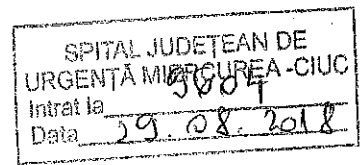 SPITAL JUDEȚEAN DE
URGENȚĂ MIERCUREA-CIUC
Intrat la 9604
Data 29.08.2018